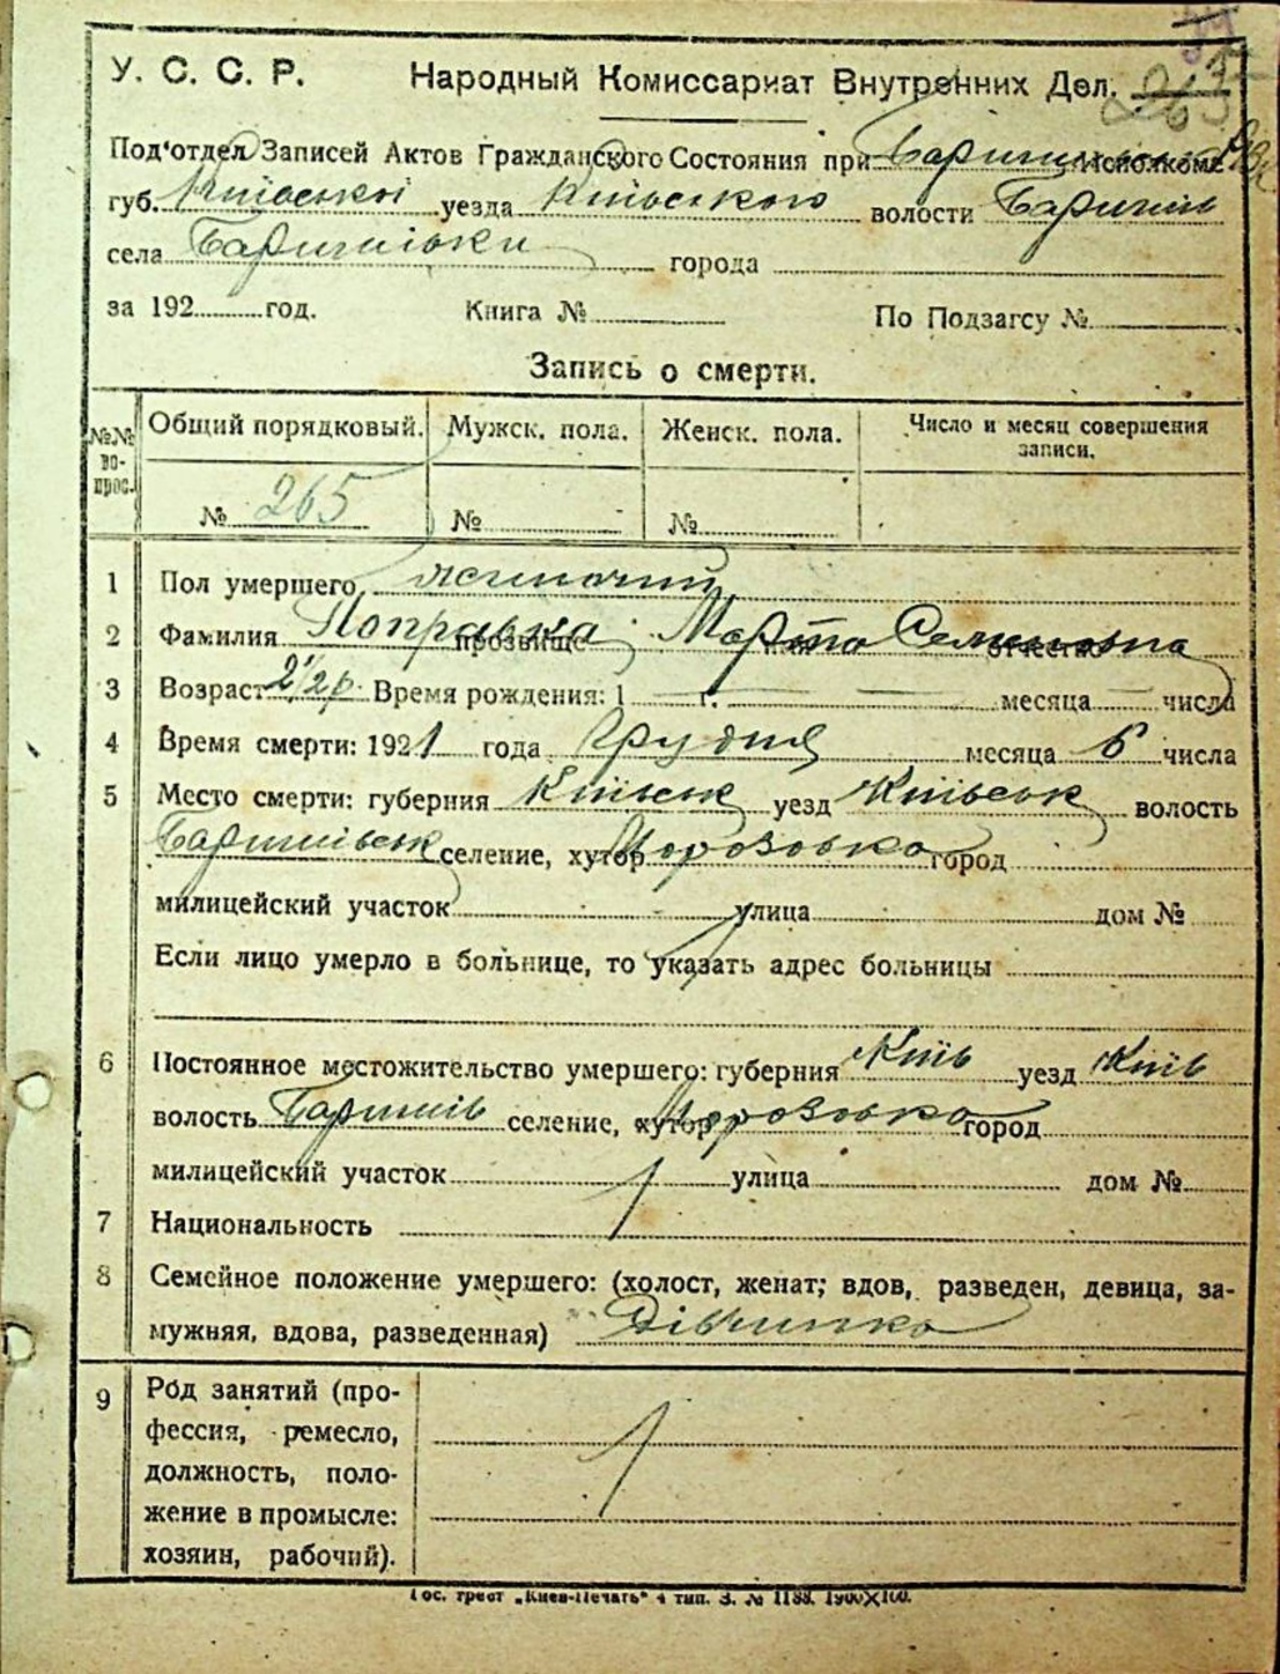 У. С. С. Р. Народный Комиссариат Внутренних Дел. 265
Под‘отдел Записей Актов Гражданского Состояния при Исполкоме
губ. Київської уезда Київського волости Баришів
села Баришівки города
за 192 год. Книга № По Подзагсу №
Запись о смерти.
№№ вопрос. Общий порядковый. Мужск. пола. Женск. пола. Число и месяц совершения записи.
№ 265 № №
1 Пол умершего жиночий
2 Фамилия Поправка прозвище Марта Семеновна
3 Возраст 2 1/2 р. Время рождения: 1 г. месяца числа
4 Время смерти: 1921 года Грудня месяца 6 числа
5 Место смерти: губерния Київськ уезд Київськ волость
Баришівськ селение, хутор Морозовка город
милицейский участок улица дом №
Если лицо умерло в больнице, то указать адрес больницы
6 Постоянное местожительство умершего: губерния Київ уезд Київ
волость Баришів селение, хутор Морозовка город
милицейский участок улица дом №
7 Национальность
8 Семейное положение умершего: (холост, женат; вдов, разведен, девица, за-
мужняя, вдова, разведенная) Дівчинка
9 Род занятий (про-
фессия, ремесло,
должность, поло-
жение в промысле:
хозяин, рабочий).
Гос. трест „Киев-Печать“ 4 тип. З. № 1188. 1900X100.